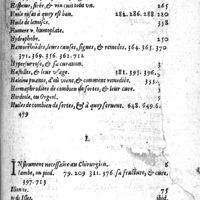 Huile rosat à quoy est bon. 284. 286. 288. 220
Huile de lenisse. 338
Humerᵒ v. homoplate.
Hydrophobe. 250
Hæmorrhoides, leurs causes, signes, & remedes. 364. 365. 370
371. 369. 356. 361. 712
Hypersarcose, & sa curation. 3.
Hasselles, & leur vsage. 381. 395. 396.
Haleine puante, d'où vient, & comment remediée. 333.
Hermaphrodites de combien de sortes, & leur cure.
Hordeola, ou Orgeol.
Huiles de combien de sortes, & à quoy seruent. 648. 649. 6
479
I.
INstrument necessaire au Chirurgien. 6
Iambe, ou pied. 79. 209. 311. 376. sa fracture, & cure.
397. 713
75
ibid.